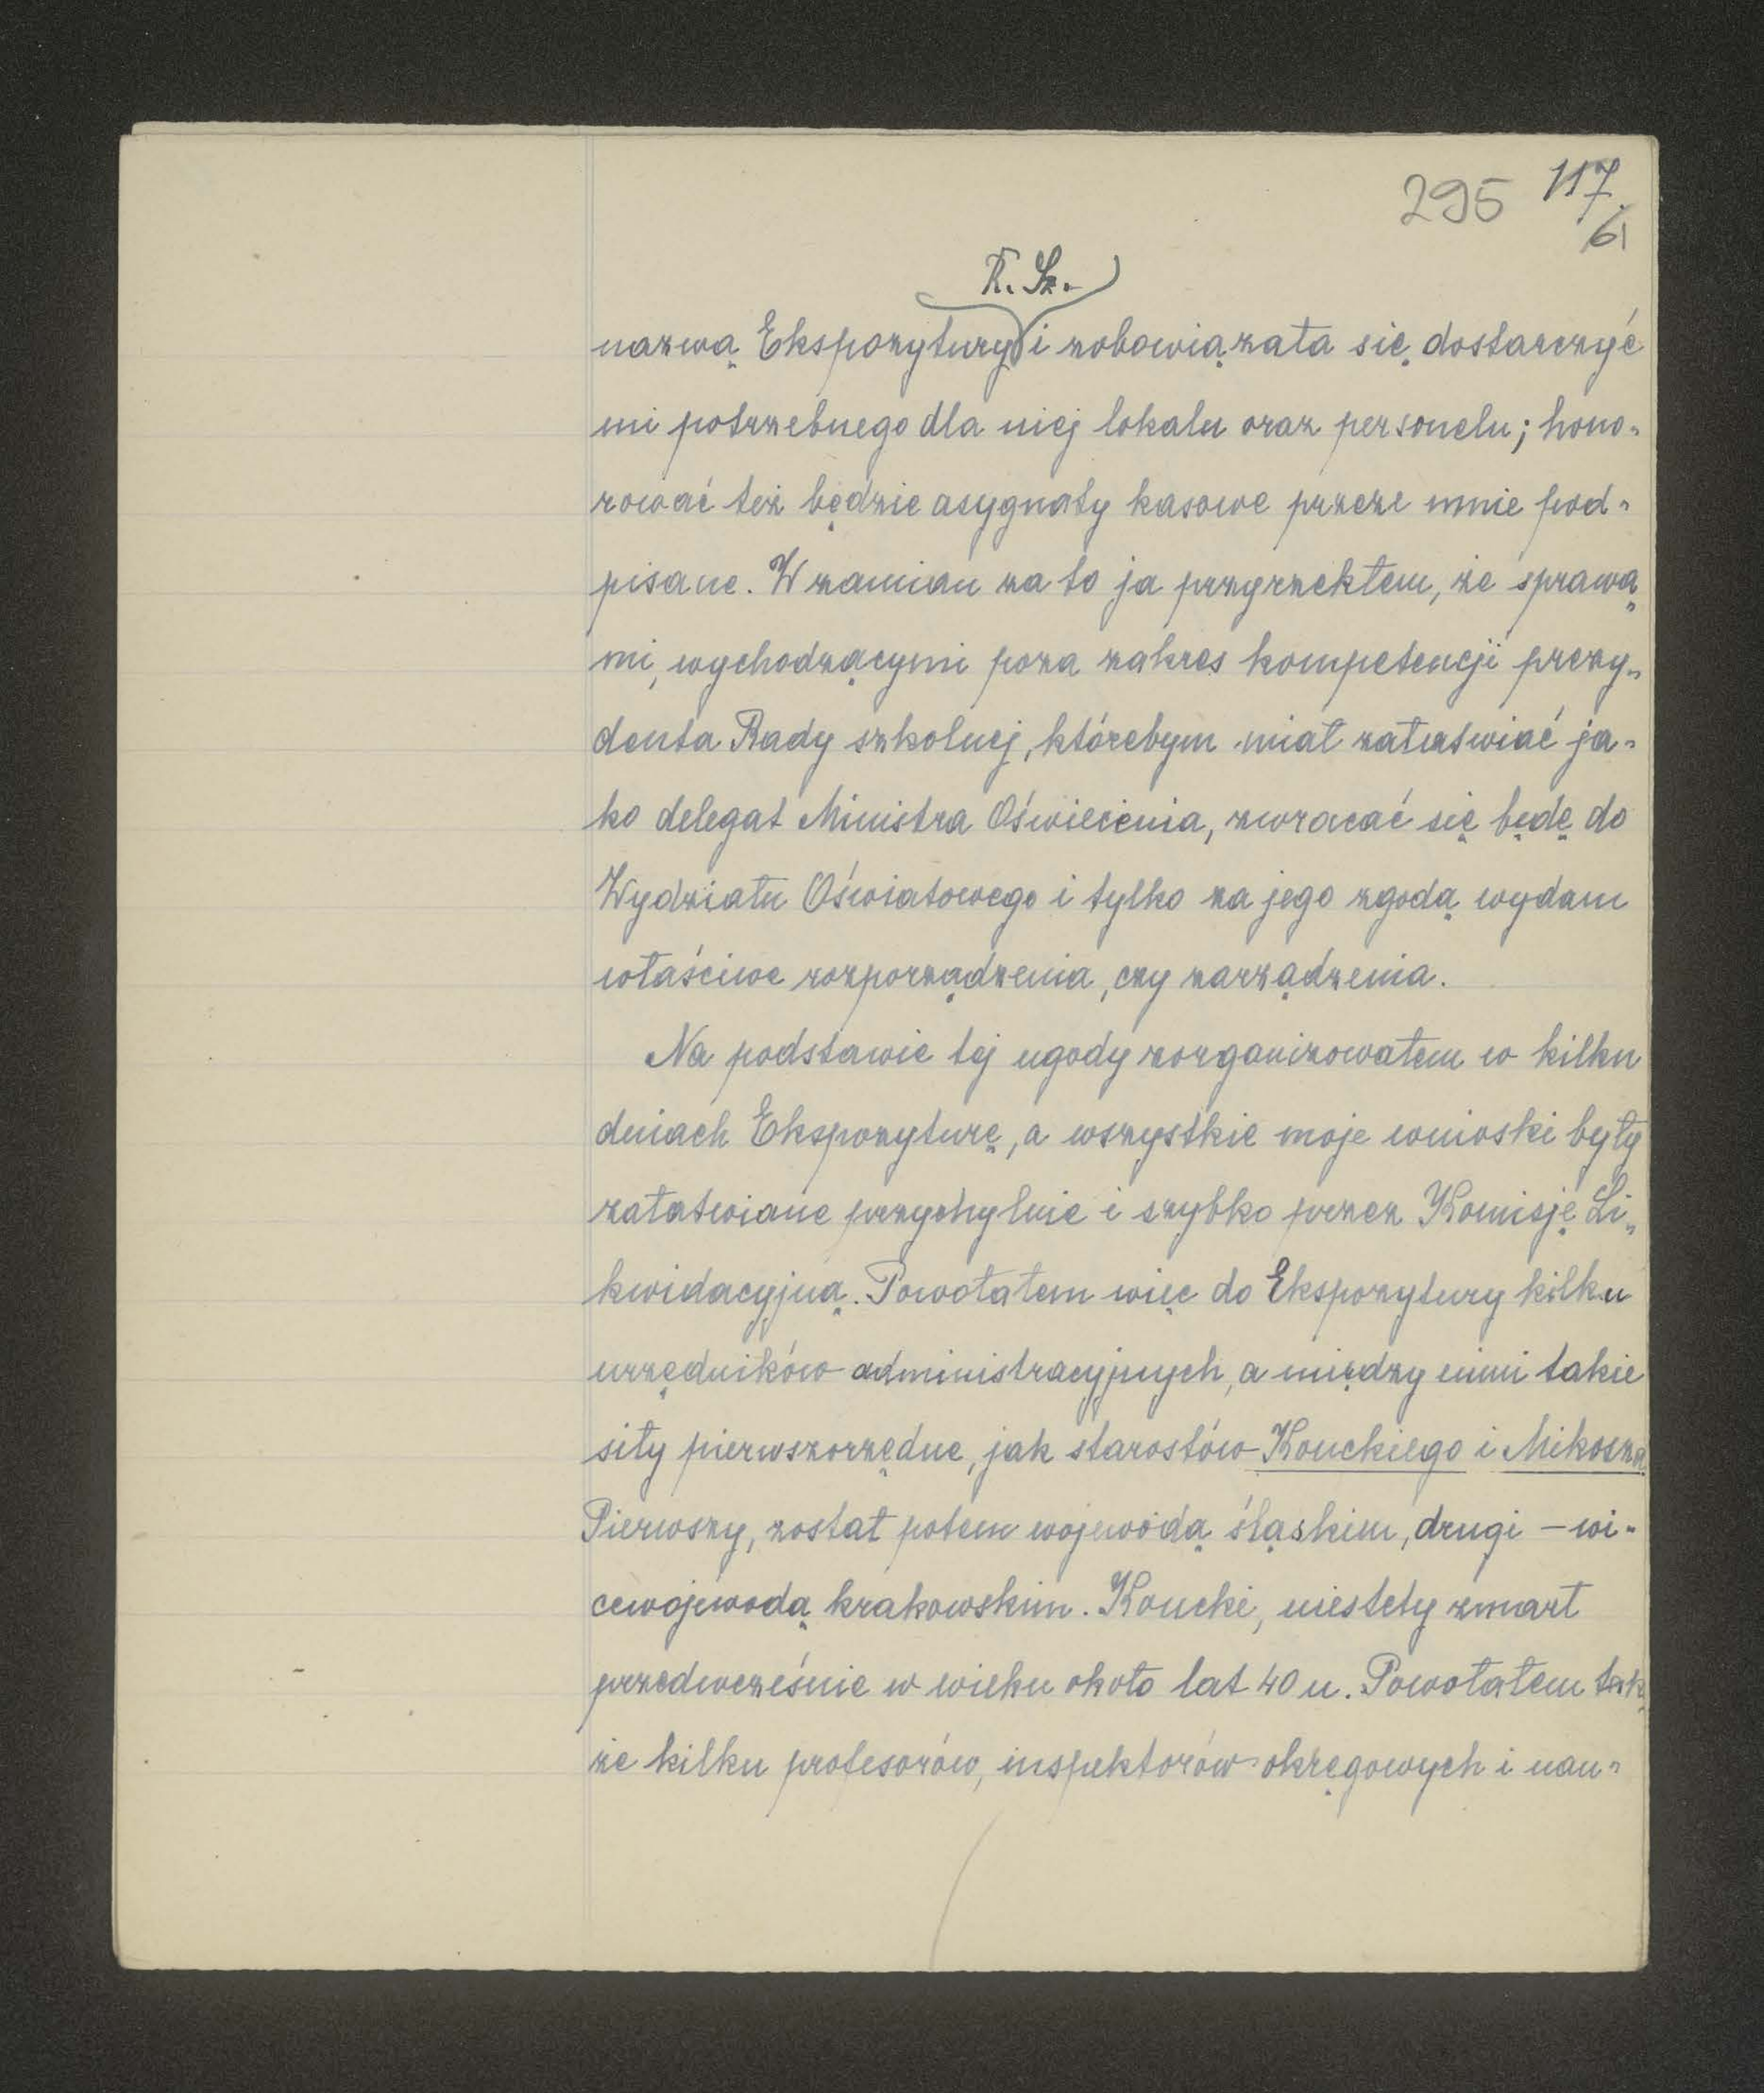 295 117
61
R. Sz.
nazwą Ekspozytury i zobowiązała się dostarczyć
mi potrzebnego dla niej lokalu oraz personelu; hono-
rować też będzie asygnaty kasowe przeze mnie pod-
pisane. W zamian za to ja przyrzekłem, że sprawa-
mi, wychodzącymi poza zakres kompetencji prezy-
denta Rady szkolnej, którebym miał załatwiać ja-
ko delegat Ministra Oświecenia, zwracać się będę do
Wydziału Oświatowego i tylko za jego zgodą wydam
właściwe rozporządzenia, czy zarządzenia.
Na podstawie tej ugody zorganizowałem w kilku
dniach Ekspozyturę, a wszystkie moje wnioski były
załatwiane przychylnie i szybko przez Komisję Li-
kwidacyjną. Powołałem więc do Ekspozytury kilku
urzędników administracyjnych, a między nimi takie
siły pierwszorzędne, jak starostów Konckiego i Mikosza
Pierwszy, został potem wojewodą śląskim, drugi – wi-
cewojewodą krakowskim. Koncki, niestety zmarł
przedwcześnie w wieku około lat 40 u. Powołałem tak-
że kilku profesorów, inspektorów okręgowych i nau-